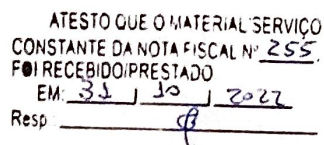 ATESTO QUE O MATERIAL SERVIÇO
CONSTANTE DA NOTA FISCAL Nº 255
FOI RECEBIDO/PRESTADO
EM: 31 / 10 / 2022
Resp